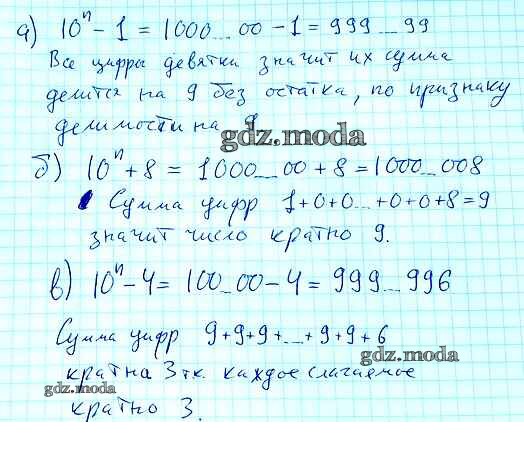 а) 10ⁿ - 1 = 1000...00 - 1 = 999...99
Все цифры девятки значит их сумма
делится на 9 без остатка, по признаку
делимости на 9
gdz.moda
б) 10ⁿ + 8 = 1000...00 + 8 = 1000...008
Сумма цифр 1+0+0...+0+0+8=9
значит число кратно 9.
в) 10ⁿ - 4 = 100...00 - 4 = 999...996
Сумма цифр 9+9+9+...+9+9+6
gdz.moda
кратна 3 т.к. каждое слагаемое
gdz.moda
кратно 3.